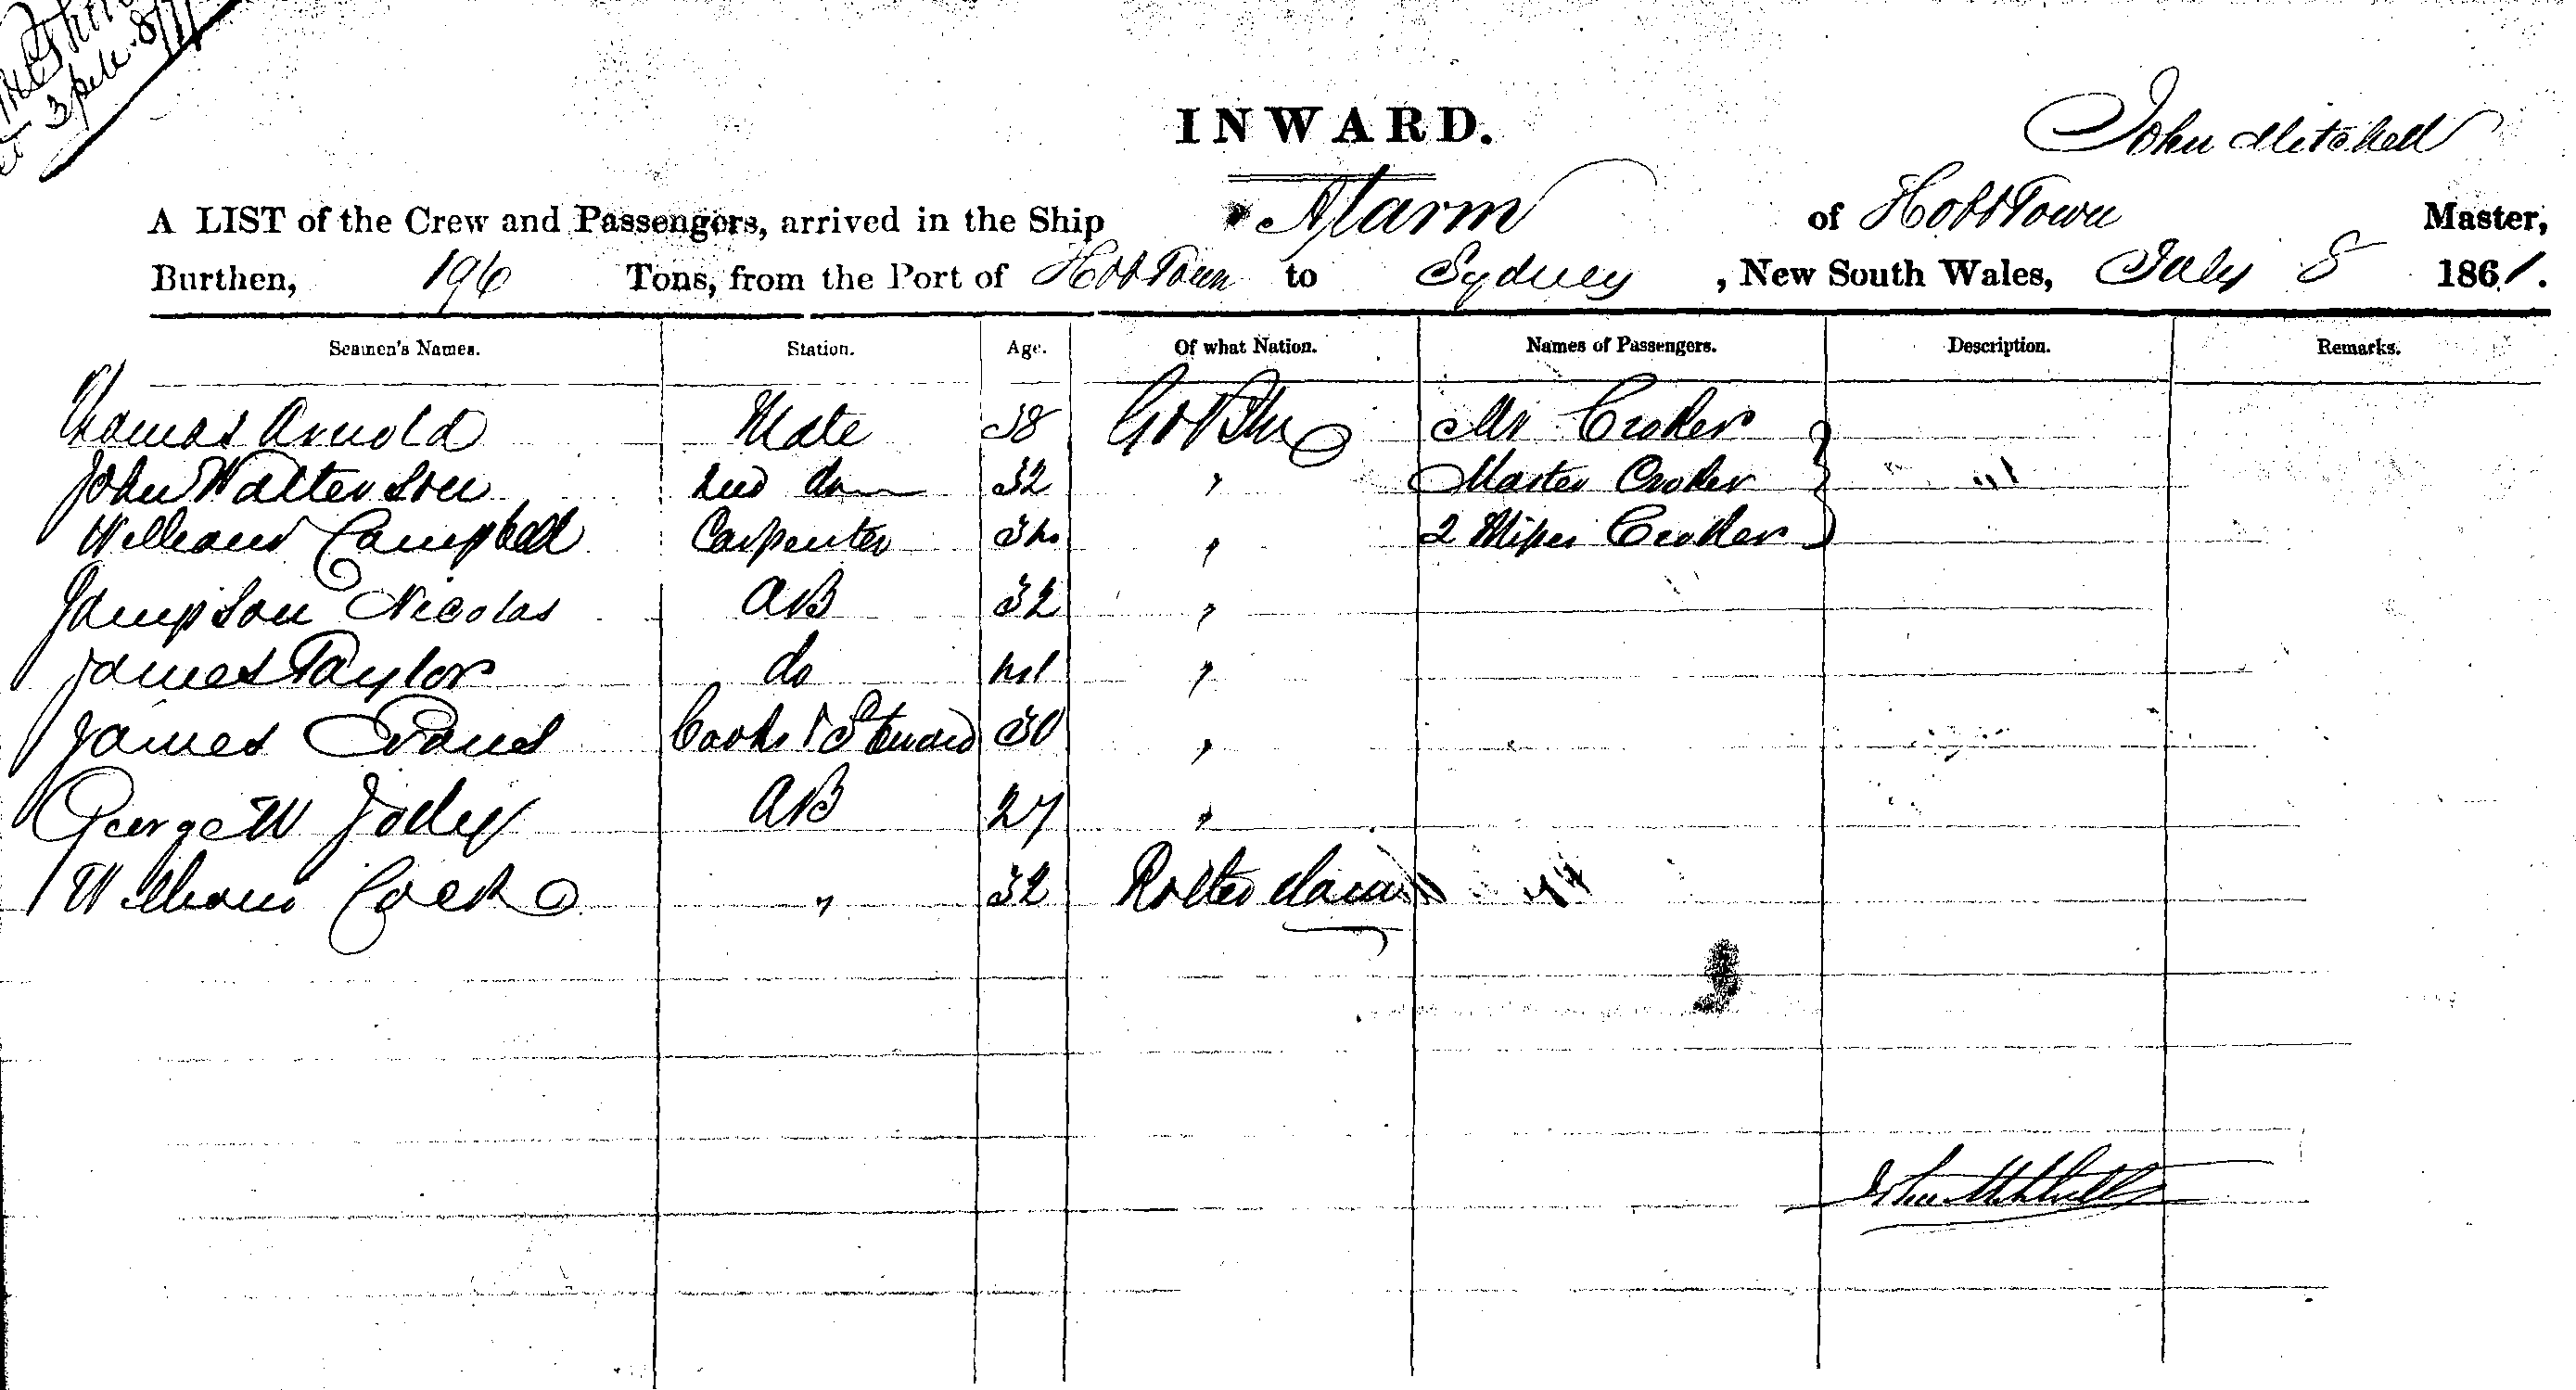 at 3 pm 8/7
INWARD.
John Mitchell
A LIST of the Crew and Passengers, arrived in the Ship Alarm of HobtTown Master,
Burthen, 196 Tons, from the Port of HobtTown to Sydney , New South Wales, July 8 1861.
Seamen's Names. Station. Age. Of what Nation. Names of Passengers. Description. Remarks.
Thomas Arnold Mate 38 Mr Croker
John Watterson 2nd do 32 " Master Croker
William Campbell Carpenter " 2 Misses Croker
Sampson Nicolas AB 32 "
James Taylor do "
James Evans Cook & Steward 30 "
George W Jolly AB 27 "
William Cock " 32 Rotterdam
John Mitchell